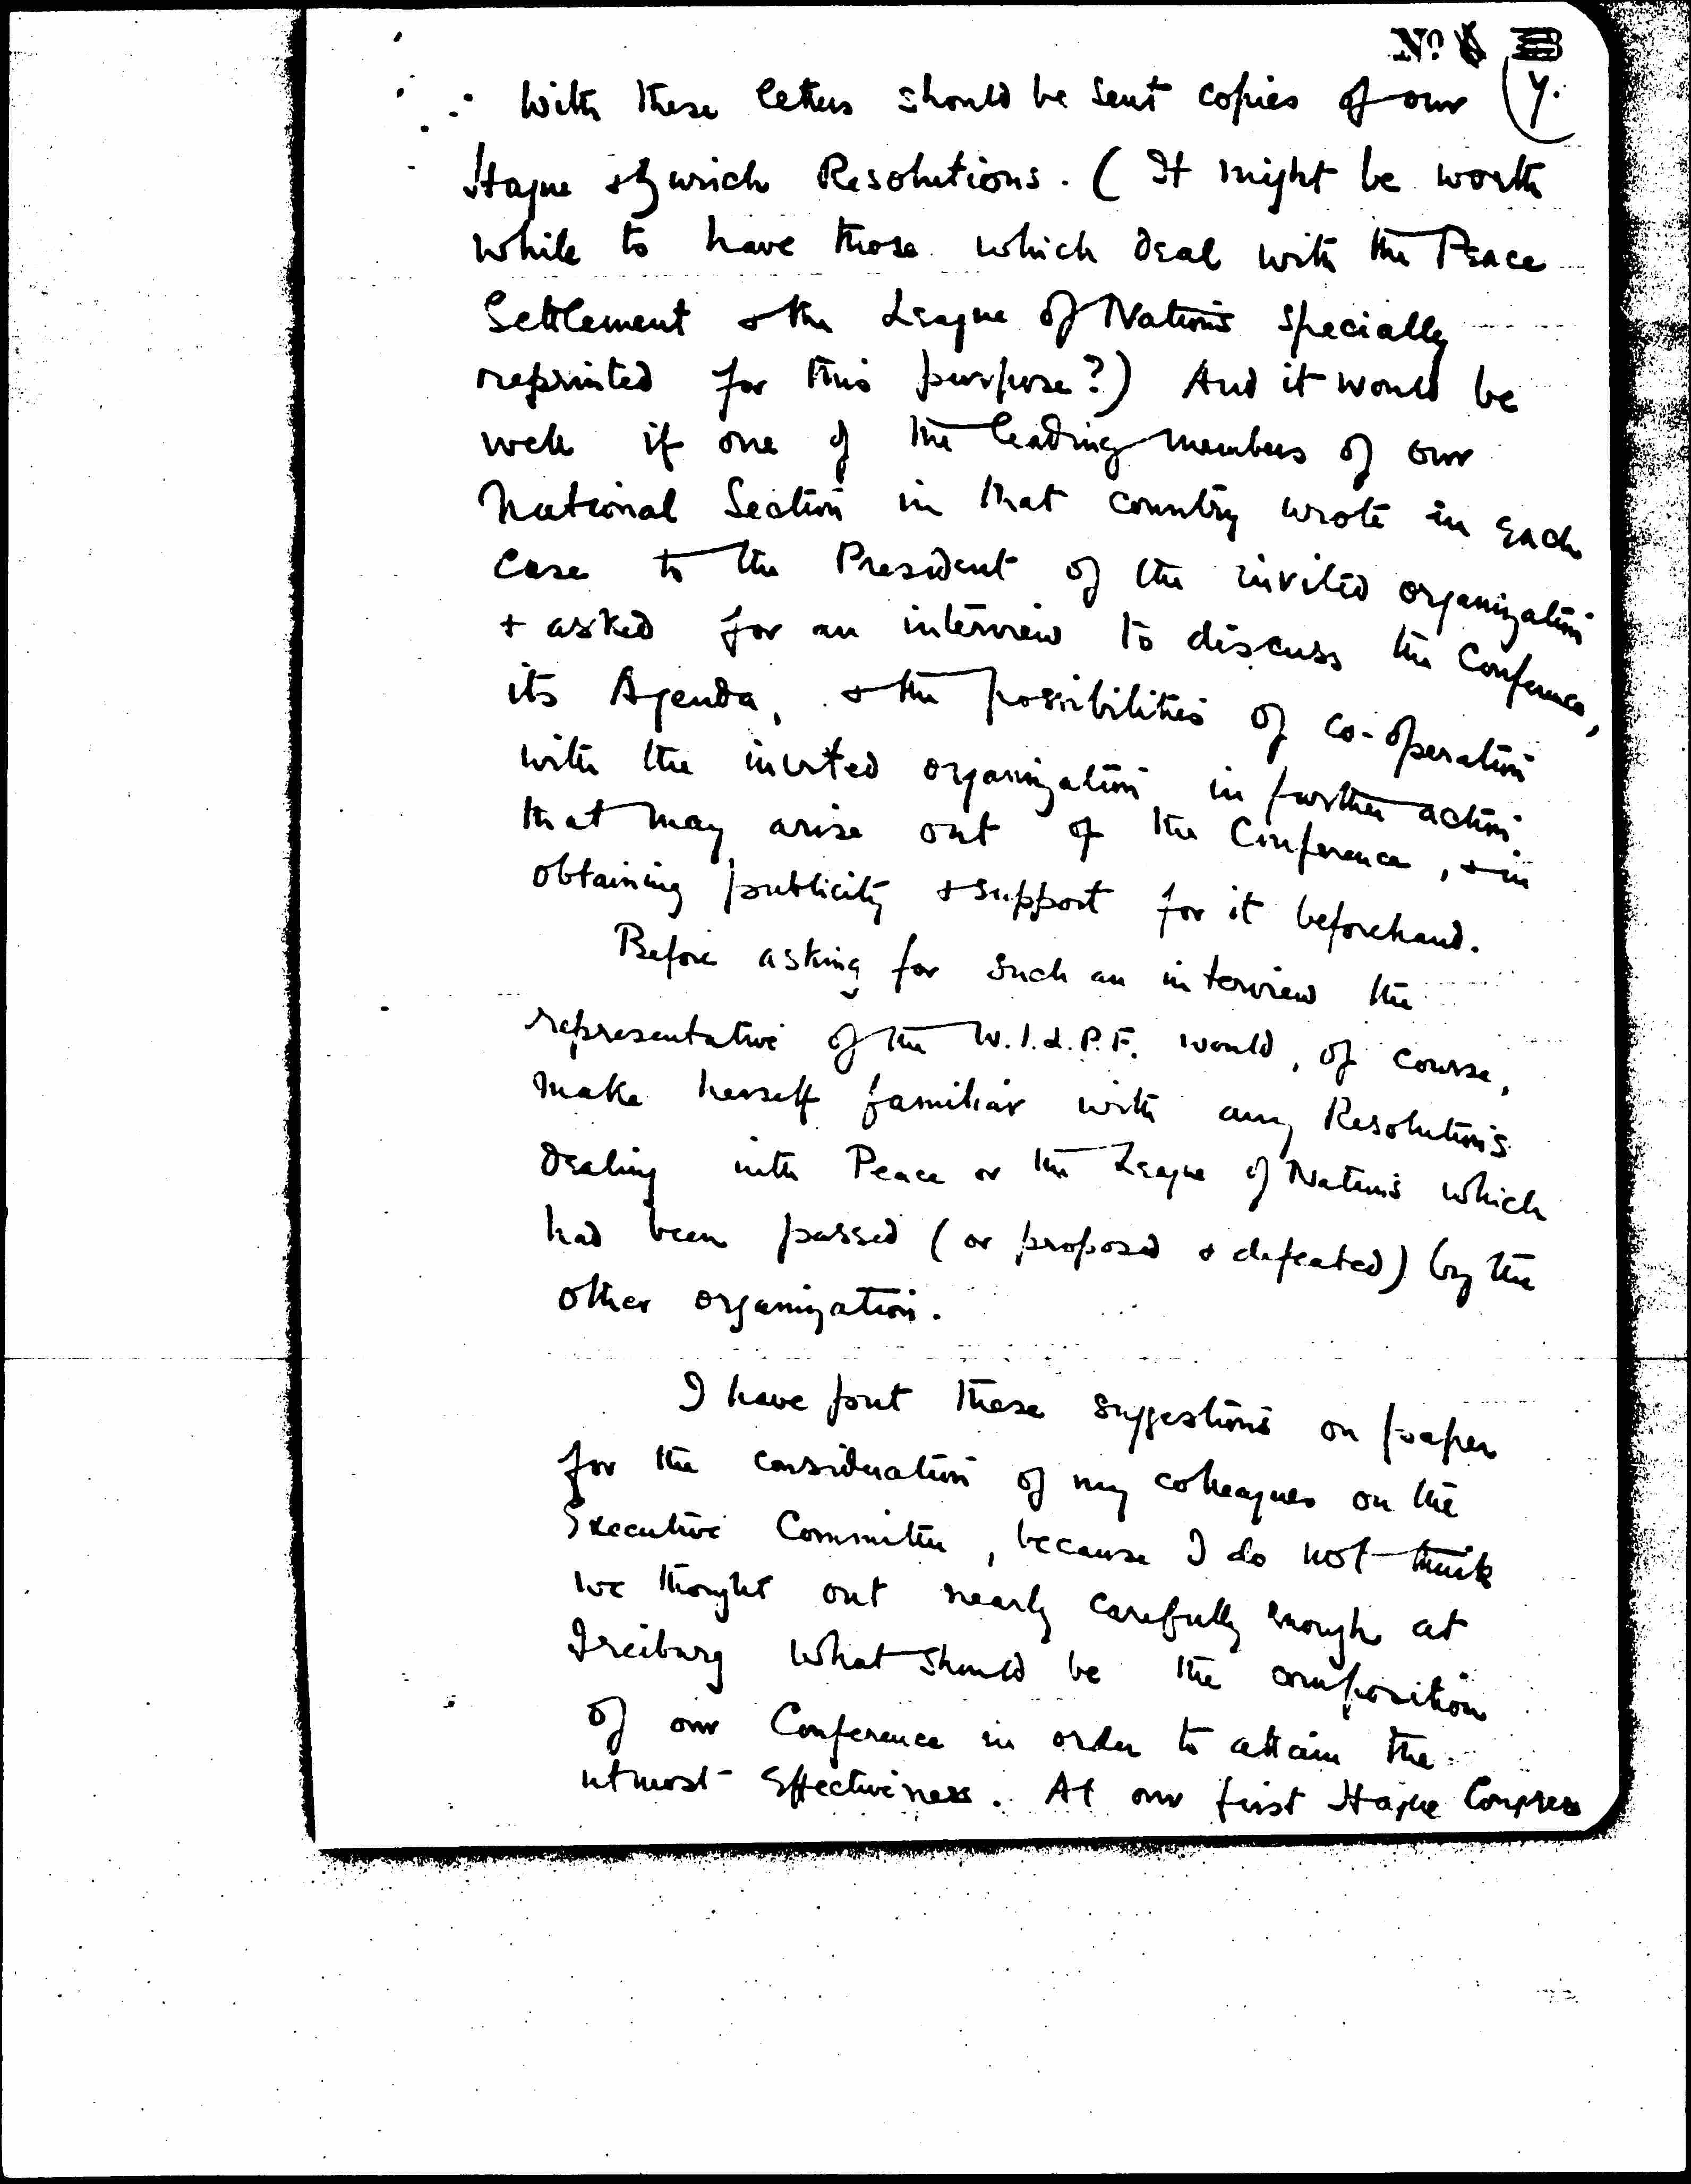 With these letters should be sent copies of our
Hague & Zurich Resolutions. (It might be worth
while to have those which deal with the Peace
Settlement & the League of Nations specially
reprinted for this purpose?) And it would be
well if one of the leading members of our
National Section in that country wrote in each
case to the President of the invited organization
& asked for an interview to discuss the Conference,
its Agenda, & the possibilities of co-operation
with the invited organization in further action
that may arise out of the Conference, & in
obtaining publicity & support for it beforehand.
Before asking for such an interview the
representative of the W.I.L.P.F. would, of course,
make herself familiar with any Resolutions
dealing with Peace or the League of Nations which
had been passed (or proposed & defeated) by the
other organization.
I have put these suggestions on paper
for the consideration of my colleagues on the
Executive Committee, because I do not think
we thought out nearly carefully enough at
Freiburg what should be the composition
of our Conference in order to attain the
utmost effectiveness. At our first Hague Congress